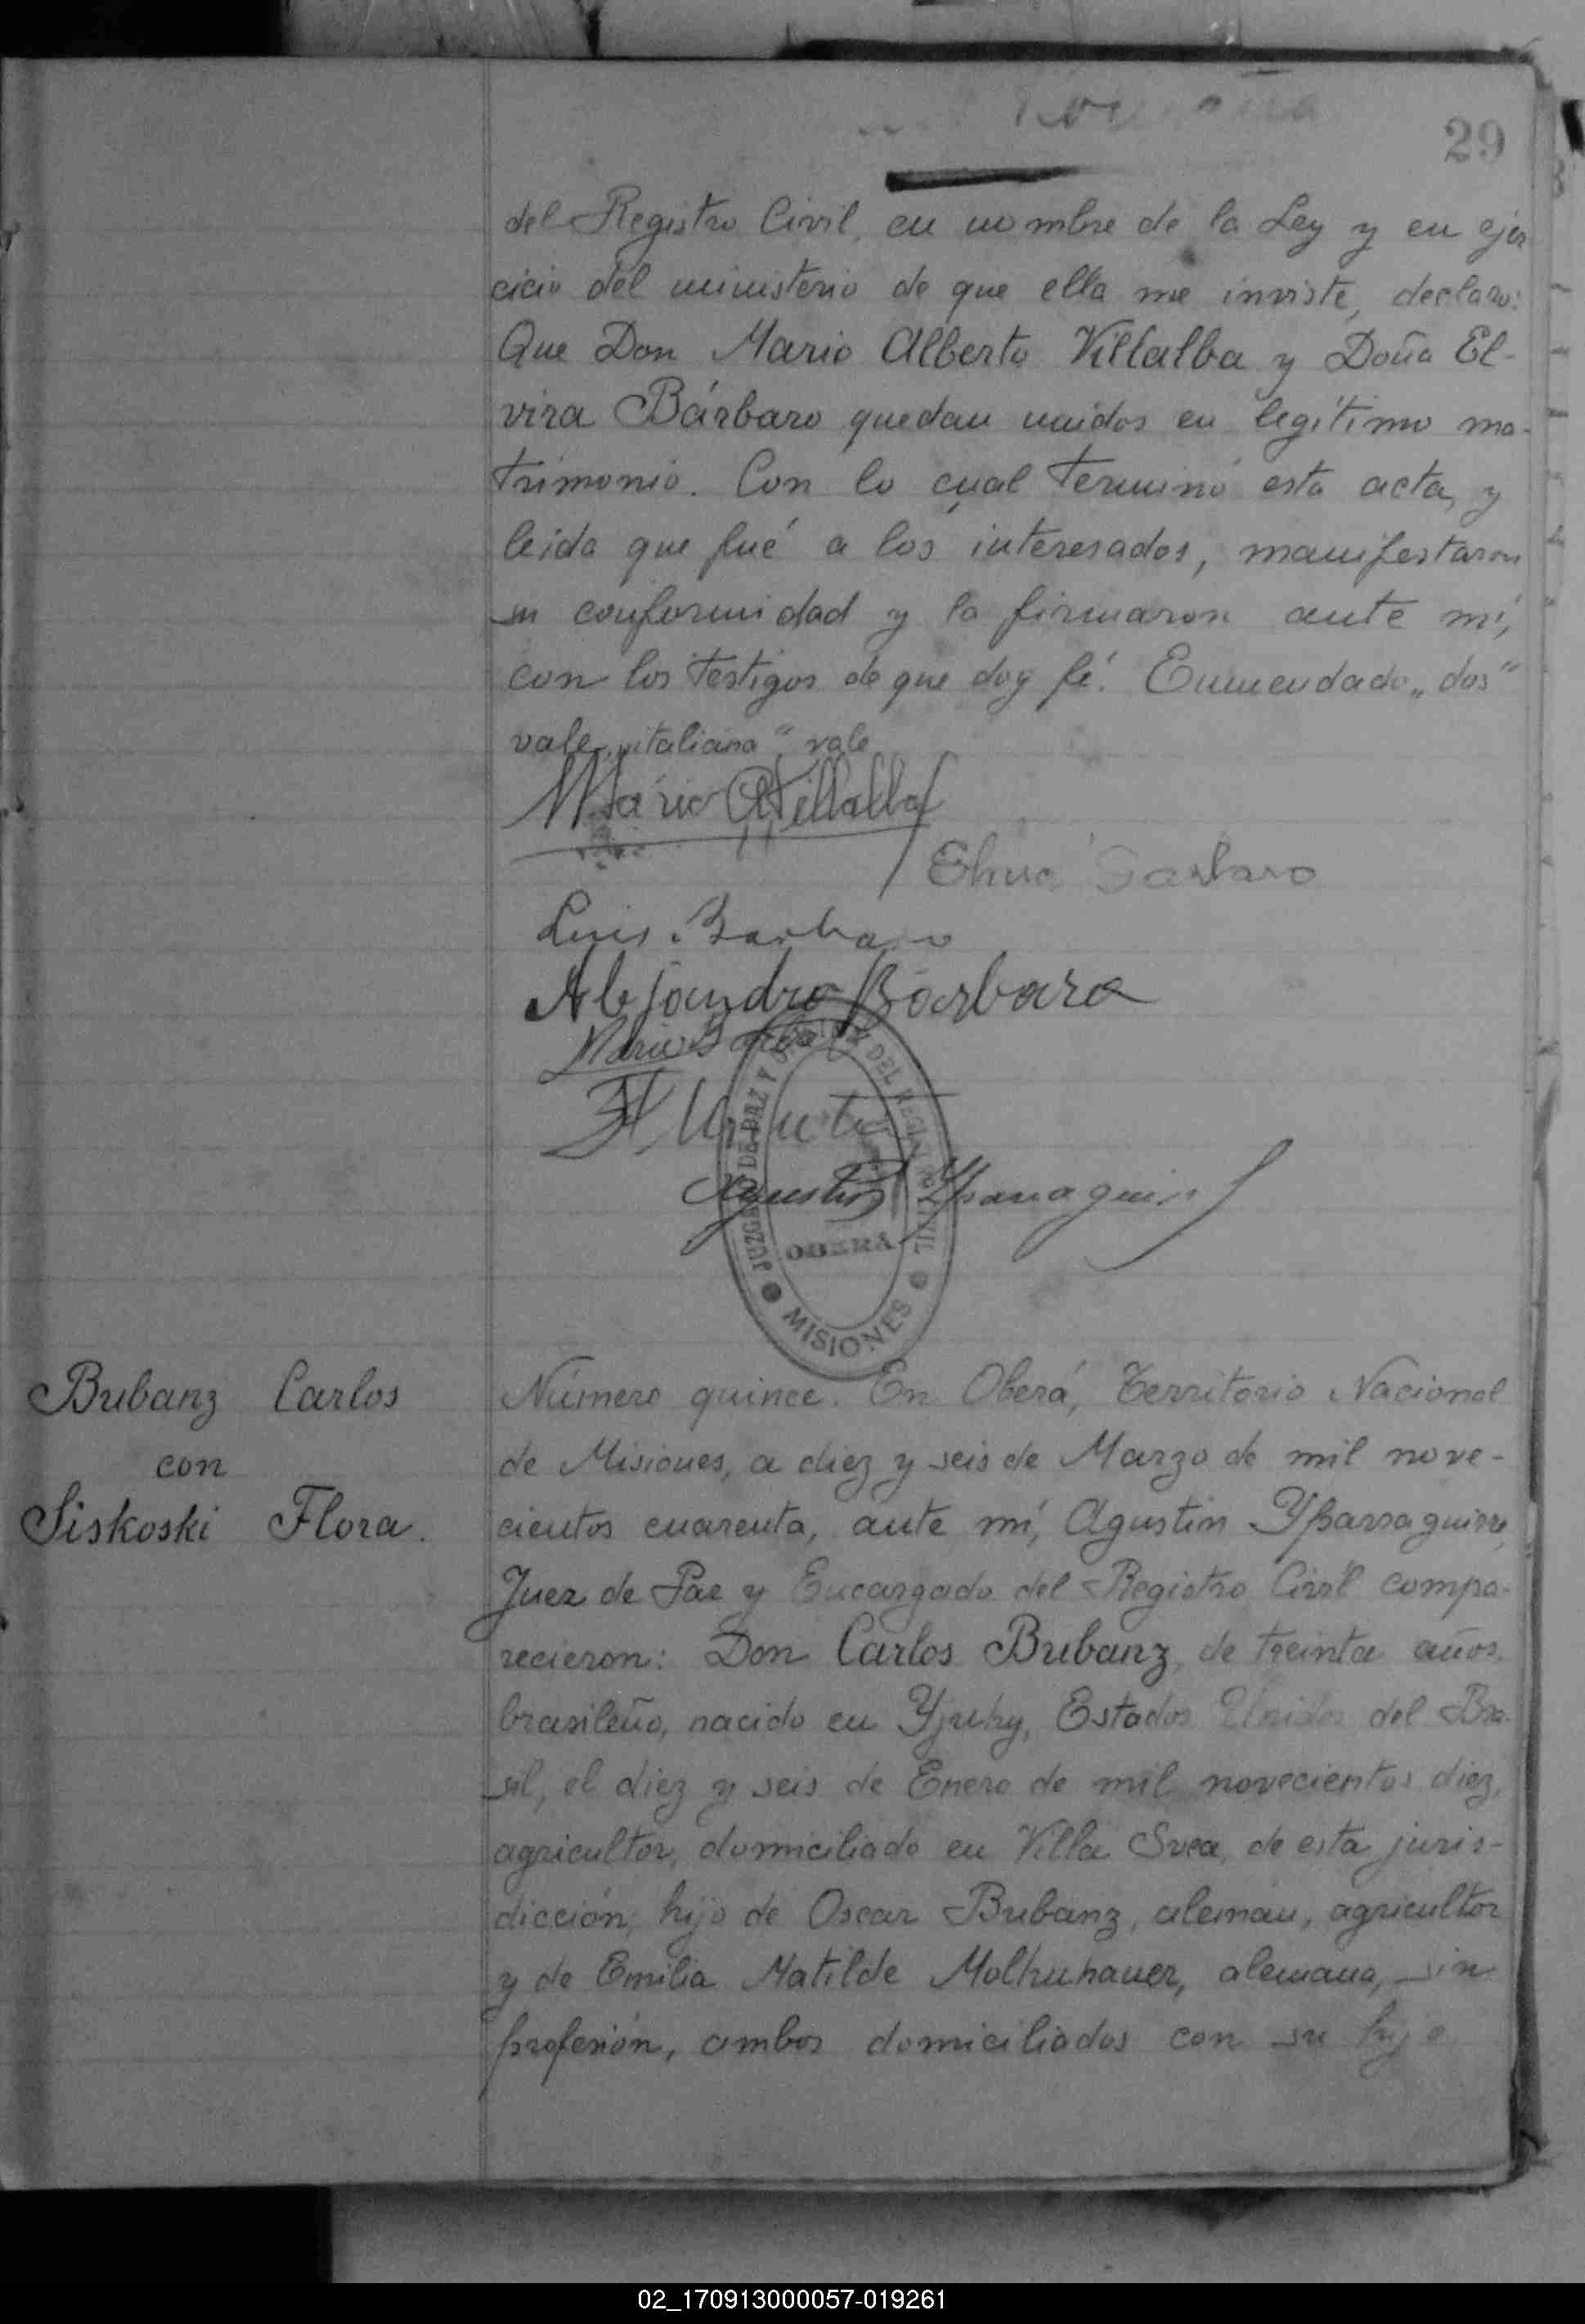 29
del Registro Civil, en nombre de la Ley y en ejer
cicio del ministerio de que ella me inviste, declaro:
Que Don Mario Alberto Villalba y Doña El-
vira Bárbaro quedan unidos en legítimo ma-
trimonio. Con lo cual terminó esta acta, y
leida que fué a los interesados, manifestaron
su conformidad y la firmaron ante mí,
con los testigos de que doy fé. Enmendado „dos“
vale „italiana“ vale
Mário A Villalba
Elvira Barbaro
Luis Barbaro
Alejandro Bárbaro
JUZGADO DE PAZ Y DEL REGISTRO CIVIL
Agustin Yparraguirre
OBERÁ
MISIONES
Bubanz Carlos
con
Siskoski Flora.
Número quince. En Oberá, Territorio Nacional
de Misiones, a diez y seis de Marzo de mil nove-
cientos cuarenta, ante mí, Agustin Yparraguirre,
Juez de Paz y Encargado del Registro Civil compa-
recieron: Don Carlos Bubanz, de treinta años,
brasileño, nacido en Yjuhy, Estados Unidos del Bra-
sil, el diez y seis de Enero de mil novecientos diez,
agricultor, domiciliado en Villa Svea, de esta juris-
dicción, hijo de Oscar Bubanz, alemán, agricultor
y de Emilia Matilde Molhuhauer, alemana, sin
profesión, ambos domiciliados con su hijo
02_170913000057-019261